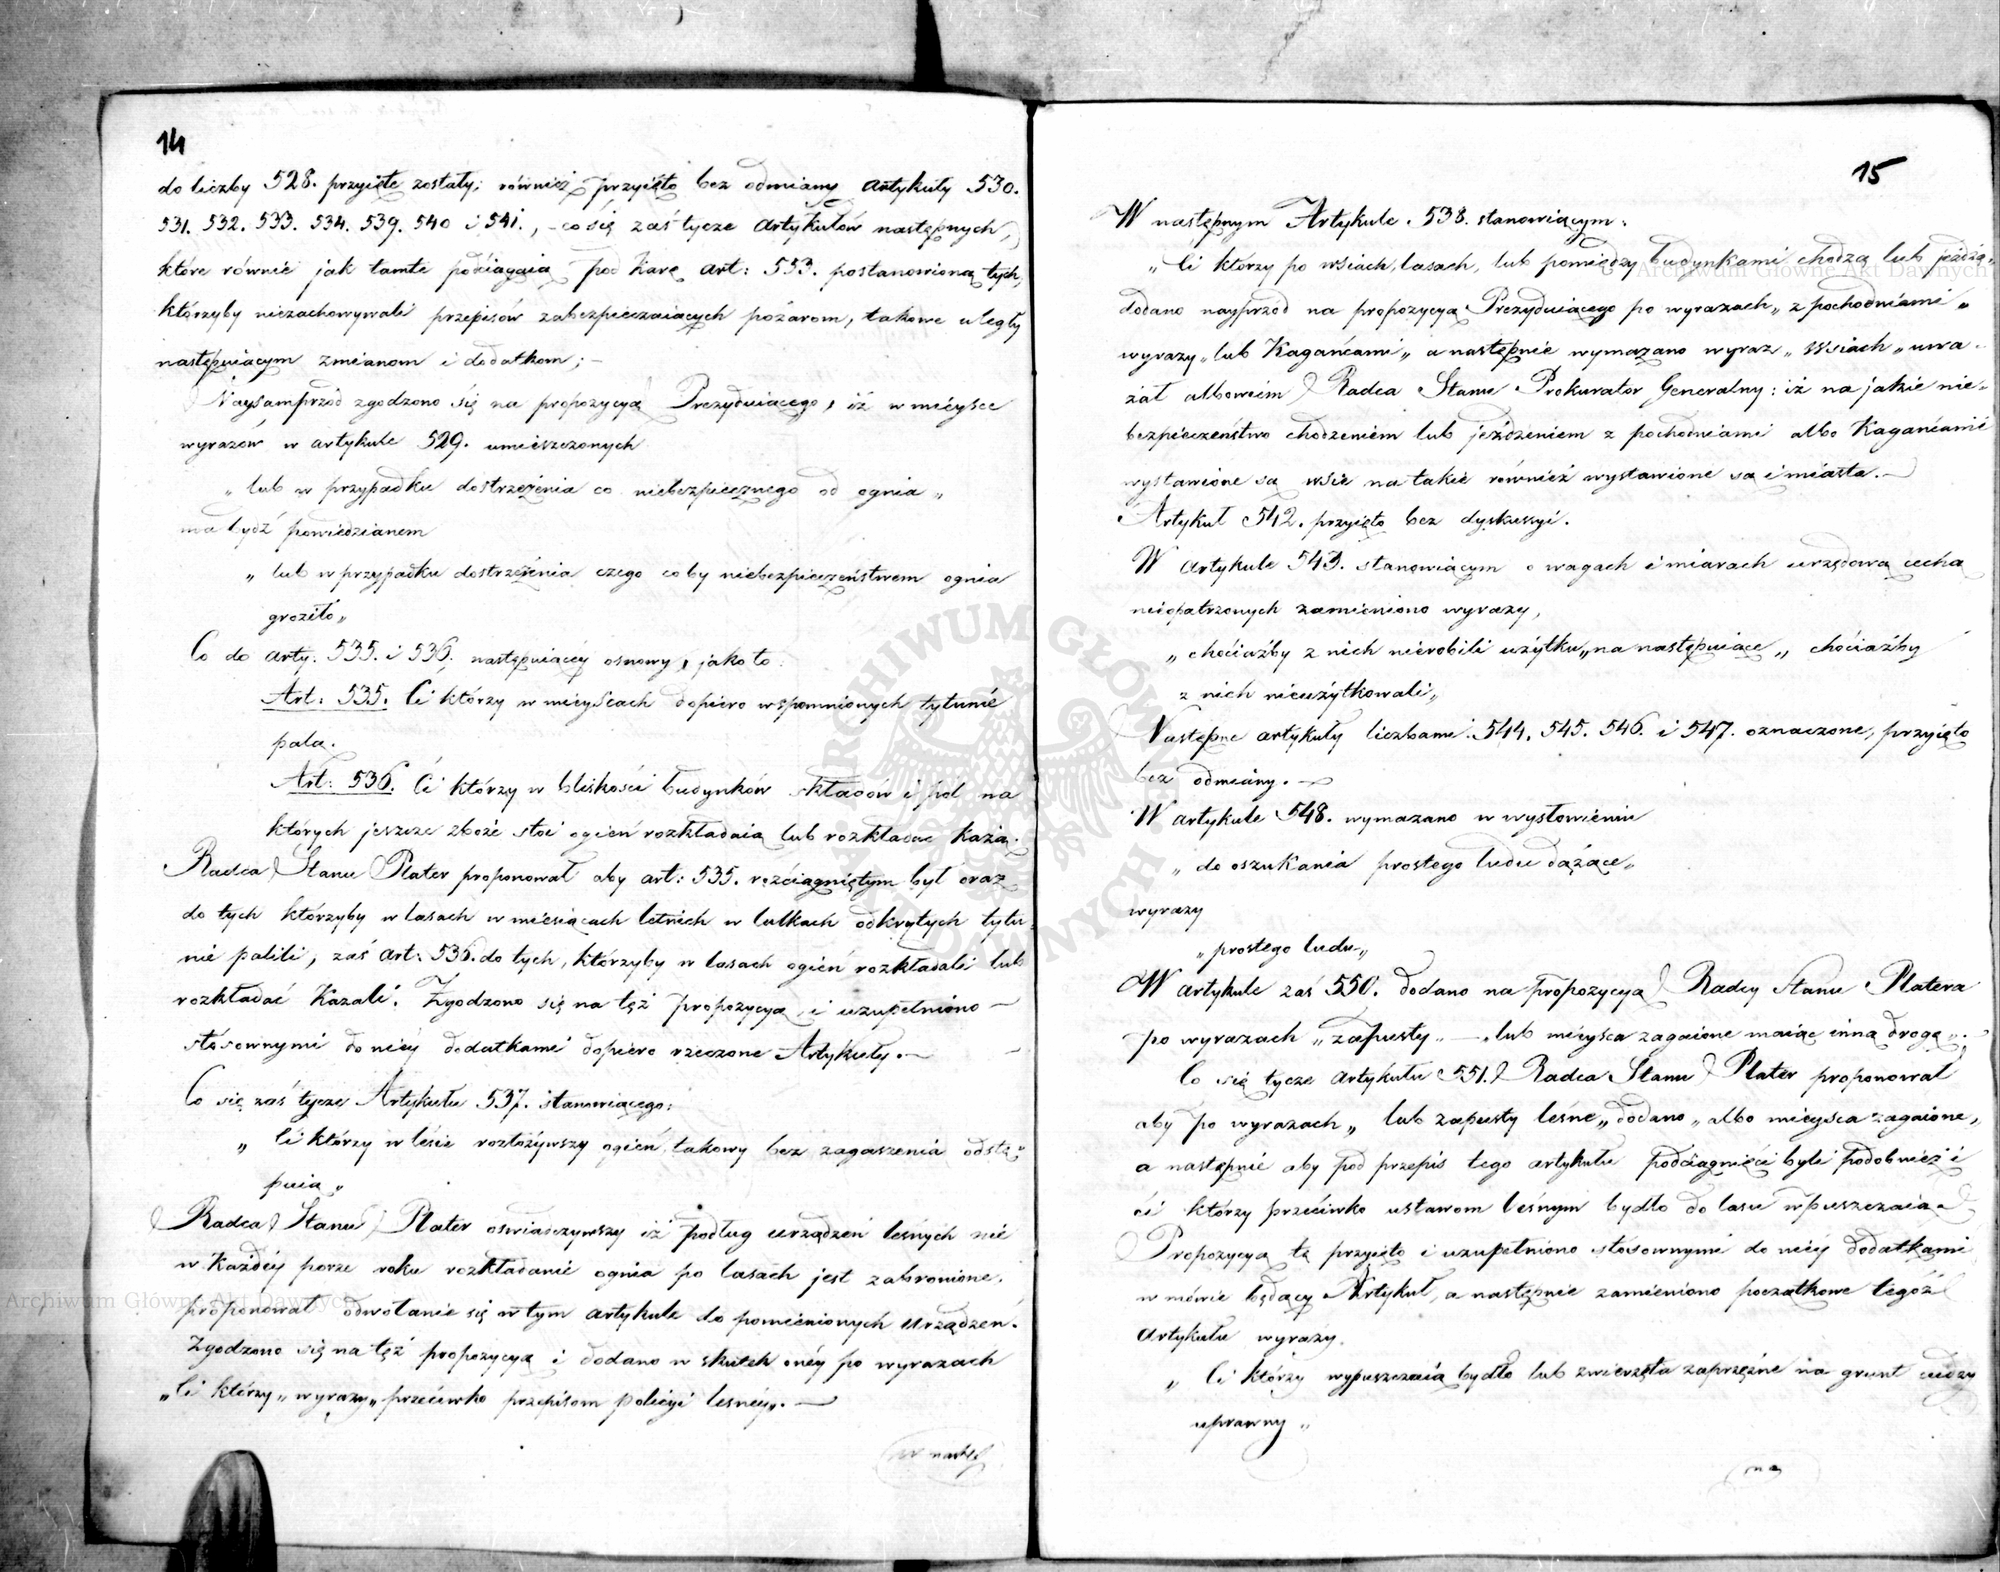 14
do liczby 528. przyięte zostały; również przyięto bez odmiany artykuły 530.
531. 532. 533. 534. 539. 540 i 541., – co się zaś tycze artykułów następnych,
które równie jak tamte podciągaią pod karę art: 553. postanowioną tych,
którzyby niezachowywali przepisów zabezpieczaiących pożarom, takowe uległy
następuiącym zmianom i dodatkom; –
Naysamprzód zgodzono się na propozycyą Prezyduiącego, iż w mieysce
wyrazów w artykule 529. umieszczonych
„ lub w przypadku dostrzeżenia co niebezpiecznego od ognia „
ma bydź powiedzianem
„ lub w przypadku dostrzeżenia czego coby niebezpieczeństwem ognia
groziło „
Co do arty. 535. i 536. następuiącey osnowy, jako to:
Art: 535. Ci którzy w mieyscach dopiero wspomnionych tytunie
palą.
Art: 536. Ci którzy w bliskości budynków składów i pól na
których jeszcze zboże stoi ogień rozkładaią lub rozkładać każą.
Radca Stanu Plater proponował aby art: 535. rozciągniętym był oraz
do tych którzyby w lasach w miesiącach letnich w lulkach odkrytych tytu-
nie palili, zaś art: 536. do tych, którzyby w lasach ogień rozkładali lub
rozkładać kazali. Zgodzono się na tęż propozycyą i uzupełniono –
stósownymi do niéy dodatkami dopiero rzeczone Artykuły. –
Co się zaś tycze Artykułu 537. stanowiącego:
„ Ci którzy w lesie rozłożywszy ogień, takowy bez zagaszenia odstę-
puią „
Radca Stanu Plater oswiadczywszy iż podług urządzeń lesnych nie
w każdéy porze roku rozkładanie ognia po lasach jest zabronione.
proponował odwołanie się w tym artykule do pomienionych urządzeń.
Zgodzono się na tęż propozycyą i dodano w skutek onéy po wyrazach
„Ci którzy„ wyrazy „ przeciwko przepisom policyi lesnéy„. –
w nastę
15
W następnym Artykule 538. stanowiącym:
„ Ci którzy po wsiach, lasach, lub pomiędzy budynkami chodzą lub jeżdżą „
dodano nayprzód na propozycyą Prezyduiącego po wyrazach „ z pochodniami „
wyrazy „ lub Kagańcami „ a następnie wymazano wyraz „ Wsiach „ uwa-
żał albowiem Radca Stanu Prokurator Generalny: iż na jakie nie-
bezpieczeństwo chodzeniem lub jeżdżeniem z pochodniami albo Kagańcami
wystawione są wsie na takie również wystawione są i miasta. –
Artykuł 542. przyięto bez dyskussyi.
W artykule 543. stanowiącym o wagach i miarach urzędową cechą
nieopatrzonych zamieniono wyrazy,
„ chociażby z nich nierobili użytku „ na następuiące „ chociażby
z nich nieużytkowali „
Następne artykuły liczbami 544. 545. 546. i 547. oznaczone, przyięto
bez odmiany. –
W artykule 548. wymazano w wysłowieniu
„ do oszukania prostego ludu dążące „
wyrazy
„ prostego ludu „
W artykule zaś 550. dodano na propozycyą Radcy Stanu Platera
po wyrazach „ zapusty „ – „ lub mieysca zagaione maiąc inną drogę „.
Co się tycze artykułu 551. Radca Stanu Plater proponował
aby po wyrazach „ lub zapusty leśne „ dodano „ albo mieysca zagaione,
a następnie aby pod przepis tego artykułu podciągnięci byli podobnież i
ci którzy przeciwko ustawom leśnym bydło do lasu wpuszczaią.
Propozycyą tę przyięto i uzupełniono stósownymi do niéy dodatkami
w mowie będący Artykuł, a następnie zamieniono początkowe tegoż
artykułu wyrazy.
„ Ci którzy wypuszczaią bydło lub zwierzęta zaprzężne na grunt cudzy
uprawny „
na
Archiwum Główne Akt Dawnych
Archiwum Główne Akt Dawnych
ARCHIWUM GŁÓWNE AKT DAWNYCH